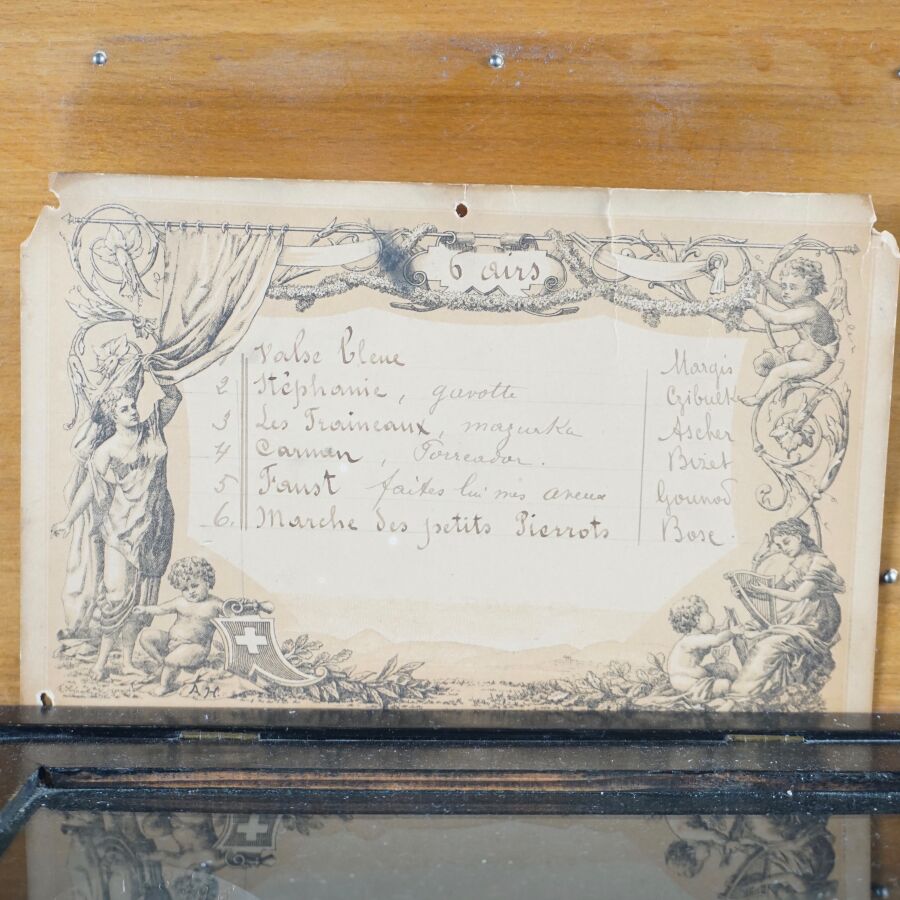 6 airs
1 Valse bleue Margis
2 Stéphanie, gavotte Czibulka
3 Les Traineaux, mazurka Ascher
4 Carmen, Torreador. Bizet
5 Faust faites lui mes aveux Gounod
6. Marche des petits Pierrots Bosc.
A.H.